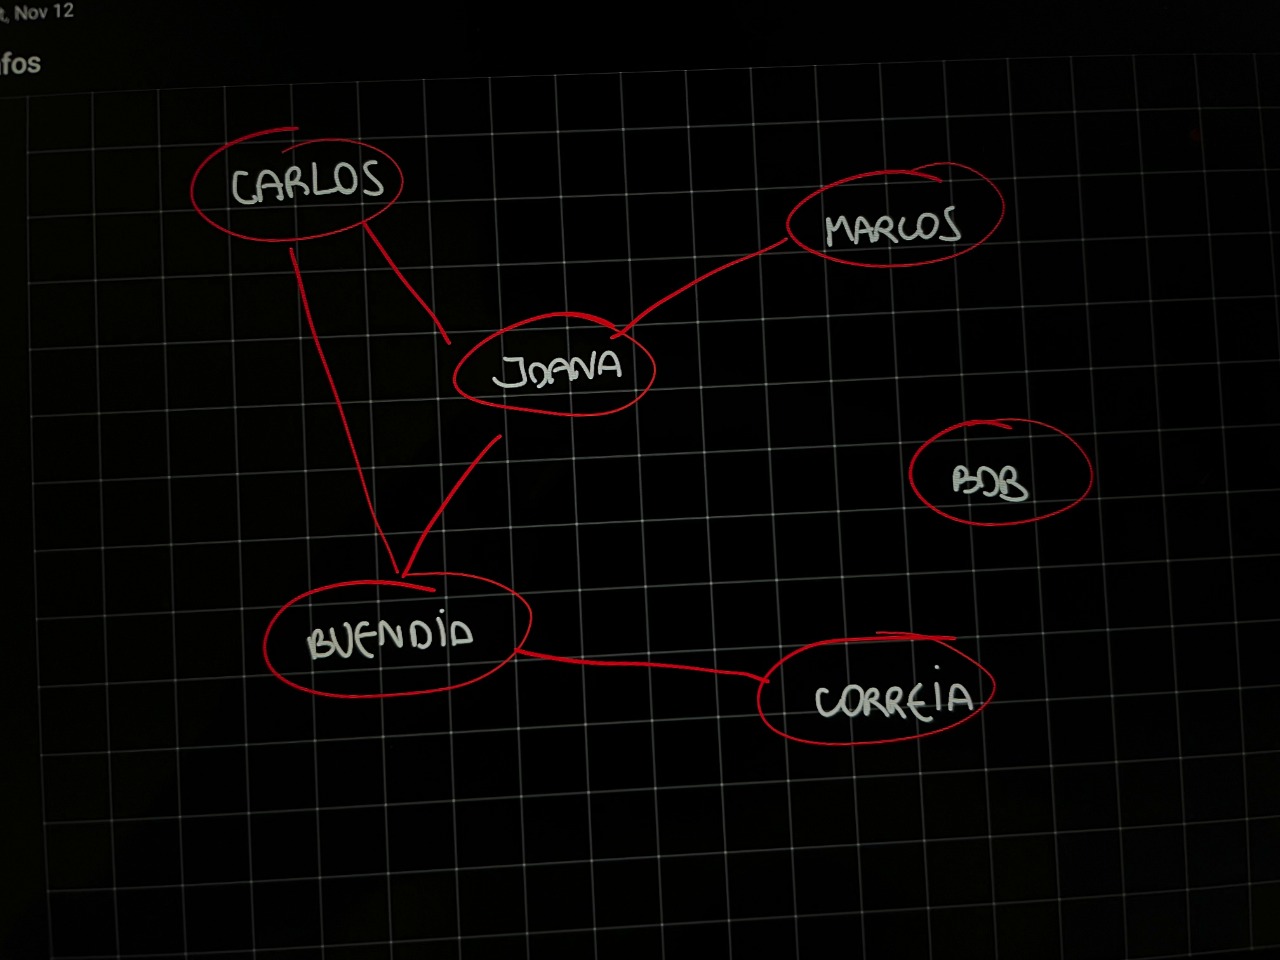 t, Nov 12
nfos
CARLOS
MARCOS
JOANA
BOB
BUENDiA
CORREiA